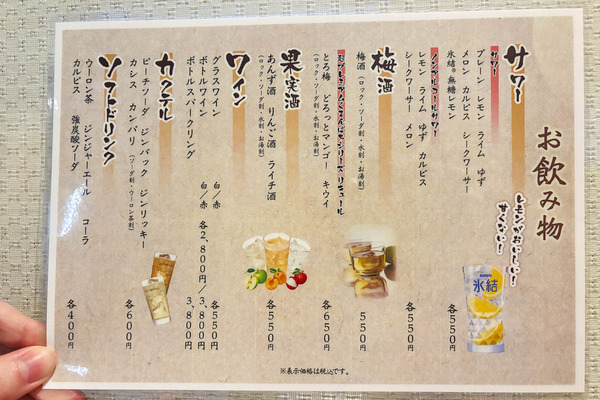 お飲み物
レモンがおいしい!
甘くない!
サワー
サワー
プレーン レモン ライム ゆず
メロン カルピス シークワーサー
氷結®無糖レモン
各550円
KIRIN
氷結
ノンアルコールサワー
レモン ライム ゆず カルピス
シークワーサー メロン
各550円
梅酒
梅酒(ロック・ソーダ割・水割・お湯割)
550円
とろ梅 どろっとマンゴー キウイ
各650円
果実酒
あんず酒 りんご酒 ライチ酒
(ロック・ソーダ割・水割・お湯割)
各550円
ワイン
グラスワイン 白/赤 各550円
ボトルワイン 白/赤 各2,800円/3,800円
ボトルスパークリング 3,800円
カクテル
ピーチソーダ ジンバック ジンリッキー
カシス カンパリ(ソーダ割・ウーロン茶割)
各600円
ソフトドリンク
ウーロン茶 ジンジャーエール コーラ
カルピス 強炭酸ソーダ
各400円
※表示価格は税込です。